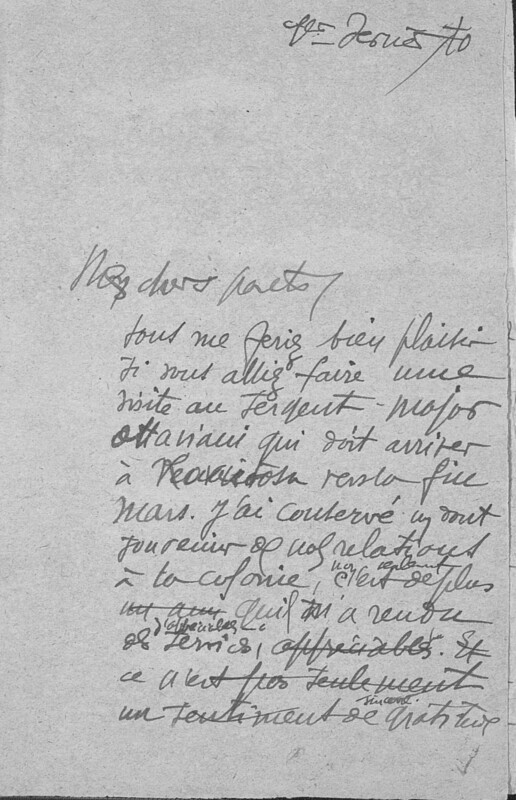 Mes chers poets,
Vous me feriez bien plaisir
si vous alliez faire une
visite au Sergent-major
Ottaviani qui doit arriver
à vers la fin
Mars. J'ai conservé un
souvenir de nos relations
à la colonie, non seulement c'est de plus
un ami qui m'a rendu
d'appréciables
des services, appréciables. Et
ce n'est pas seulement
un sentiment de sincère gratitude